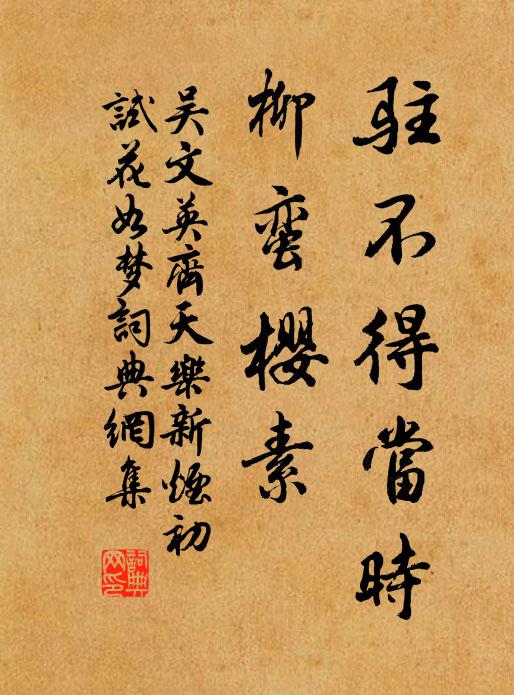 駐不得當時
柳蛮櫻素
吴文英齊天樂新煙初
試花如梦詞典網集
詞典網印